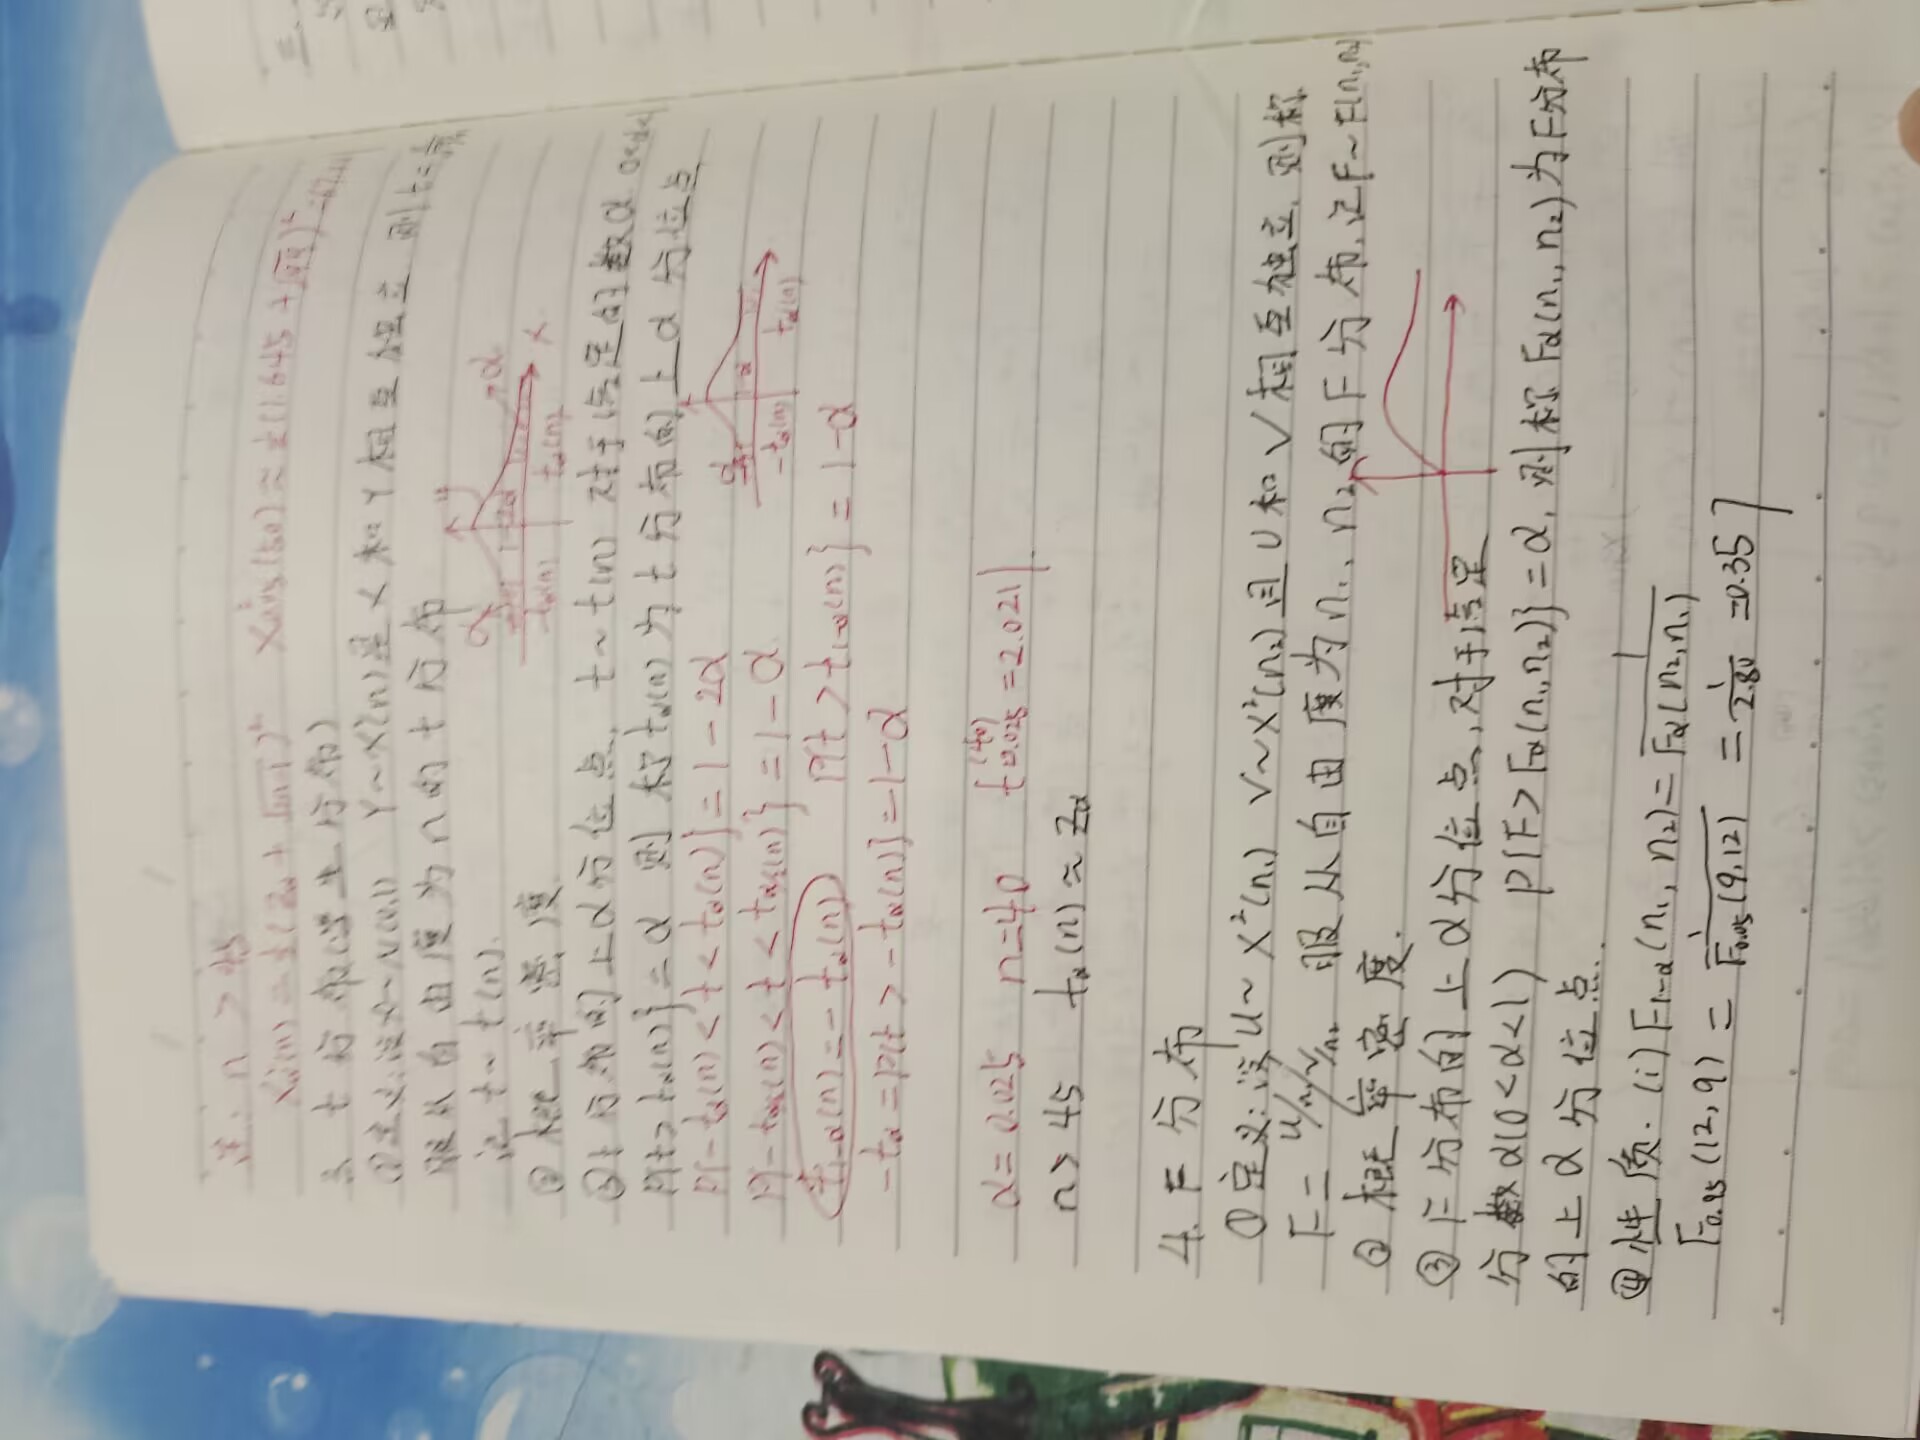 注: n > 45
χ²α(n) ≈ ½(Zα + √2n-1)² χ²0.05(50) ≈ ½(1.645 + √99)² = 67.
三、t 分布(学生分布)
①定义:设X~N(0,1) Y~χ²(n)且 X 和 Y 相互独立 则 t =
服从自由度为 n 的 t 分布
记 t ~ t(n).
②概率密度.
③t分布的上α分位点, t ~ t(n) 对于给定的数α 0<α<1
P{t > tα(n)} = α 则称 tα(n) 为 t 分布的上α分位点
P{-tα(n) < t < tα(n)} = 1-2α
P{-tα/2(n) < t < tα/2(n)} = 1-α
t1-α(n) = -tα(n) P{t > t1-α(n)} = 1-α
-tα = P{t > -tα(n)} = 1-α
α
1-2α
α
-tα(n)
tα(n)
x
α
1-α
-tα(n)
tα(n)
α = 0.025 n=40 t0.025(40) = 2.021
n > 45 tα(n) ≈ Zα
4. F 分布
①定义:设 U ~ χ²(n₁) V ~ χ²(n₂) 且 U 和 V 相互独立, 则称
F = U/n₁/V/n₂ 服从自由度为 n₁, n₂ 的 F 分布, 记 F ~ F(n₁,n₂)
②概率密度.
③F分布的上α分位点, 对于给定
分数α(0<α<1) P{F > Fα(n₁,n₂)} = α, 则称 Fα(n₁,n₂) 为 F分布
的上α分位点.
④性质. (i) F1-α(n₁,n₂) = 1/Fα(n₂,n₁)
F0.95(12,9) = 1/F0.05(9,12) = 1/2.80 = 0.35